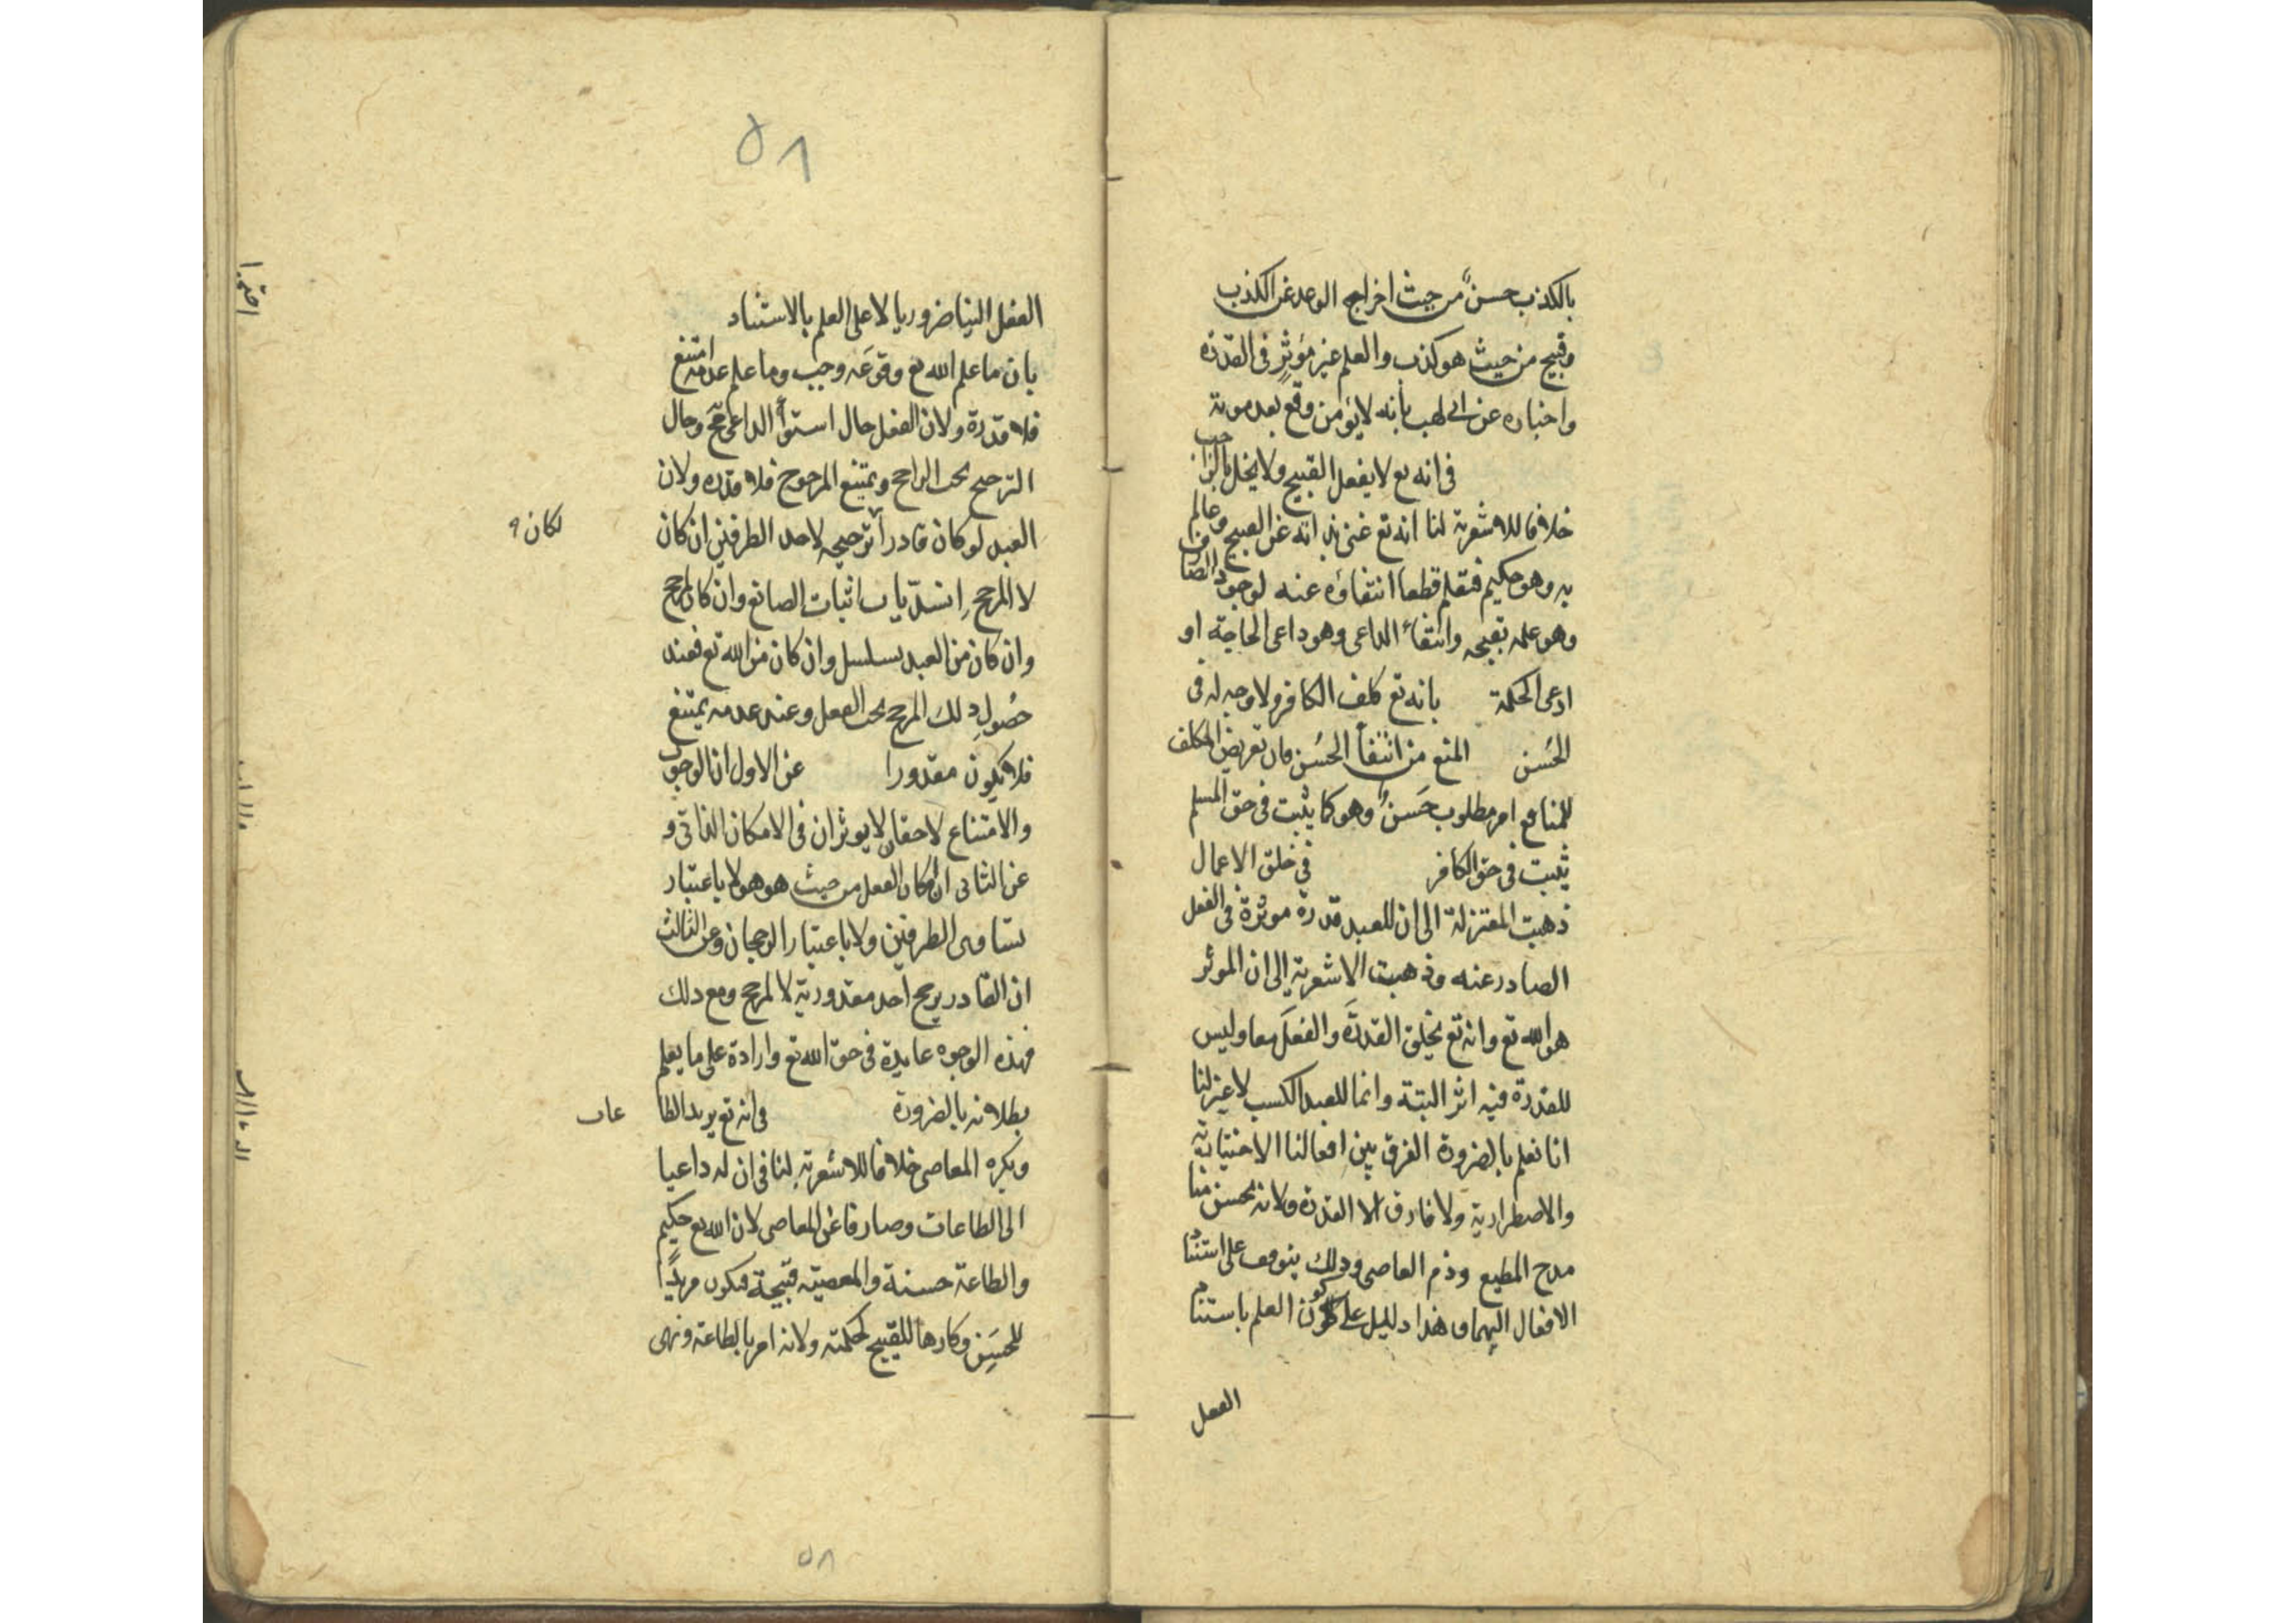 بالكذب حسنٌ من حيث اخراج الوعد عن الكذب
وقبيح من حيث هو كذب والعلم غير مؤثرٍ فى القدرة
واخباره عن ابى لهب بأنه لا يؤمن وقع بعد موته
فى انه تع لا يفعل القبيح ولا يخل بالواجب
خلافا للاشعرية لنا انه تع غنى بذاته عن القبيح وعالم
به وهو حكيم فنعلم قطعا انتفاؤه عنه لوجود الصارف
وهو علمه بقبحه وانتفاء الداعى وهو داعى الحاجة او
داعى الحكمة بانه تع كلف الكافر ولا وجه له فى
الحُسن المنع من انتفأ الحُسن فان تعريض المكلف
للمنافع امر مطلوب حَسنٌ وهو كما يثبت فى حق المسلم
يثبت فى حق الكافر فى خلق الاعمال
ذهبت المعتزلة الى ان للعبد قدرة موثرة فى الفعل
الصادر عنه وذهبت الاشعرية الى ان الموثر
هو الله تع وانه تع يخلق القدرَة والفعلَ معا وليس
للقدرة فيه اثر البتة وانما للعبد الكسب لا غير لنا
انا نعلم بالضرورة الفرق بين افعالنا الاختيارية
والاضطرارية ولا فارق الا القدرة ولانه يحسن منا
مدح المطيع وذم العاصى وذلك يتوقف على استناد
الافعال اليهما وهذا دليل على كون العلم باستناد
الفعل
٥٨
الفعل الينا ضروريا لا على العلم بالاستناد
بان ما علم الله تع وقوعَه وجب وما علم عدمه امتنع
فلا قدرة ولان الفعل حال استوأ الداعى مح وحال
الترجيح يجب الراجح ويمتنع المرجوح فلا قدره ولان
العبد لو كان قادرا ترجيحه لاحد الطرفين ان كان
لكان
لا لمرجح انسدّ باب اثبات الصانع وان كان لمرجح
وان كان من العبد تسلسل وان كان من الله تع فعند
حُصولِ ذلك المرجح يجب الفعل وعند عدمه يمتنع
فلا يكون مقدورا عن الاول ان الوجوب
والامتناع لاحقان لا يوثران فى الامكان الذاتى و
عن الثانى ان امكان الفعل من حيث هو هو لا باعتبار
تساوى الطرفين ولا باعتبار الرجحان وعن الثالث
ان القادر يرجح احد مقدوريه لا لمرجح ومع ذلك
فهذه الوجوه عايدة فى حق الله تع وارادة على ما يعلم
بطلانه بالضرورة فى انه تع يريد الطا
عات
ويكره المعاصى خلافا للاشعرية لنا فى ان له داعيا
الى الطاعات وصارفا عن المعاصى لان الله تع حكيم
والطاعة حسنة والمعصية قبيحة فيكون مريدًا
للحسَنِ وكارها للقبيح لحكمته ولانه امر بالطاعة ونهى
٥٨